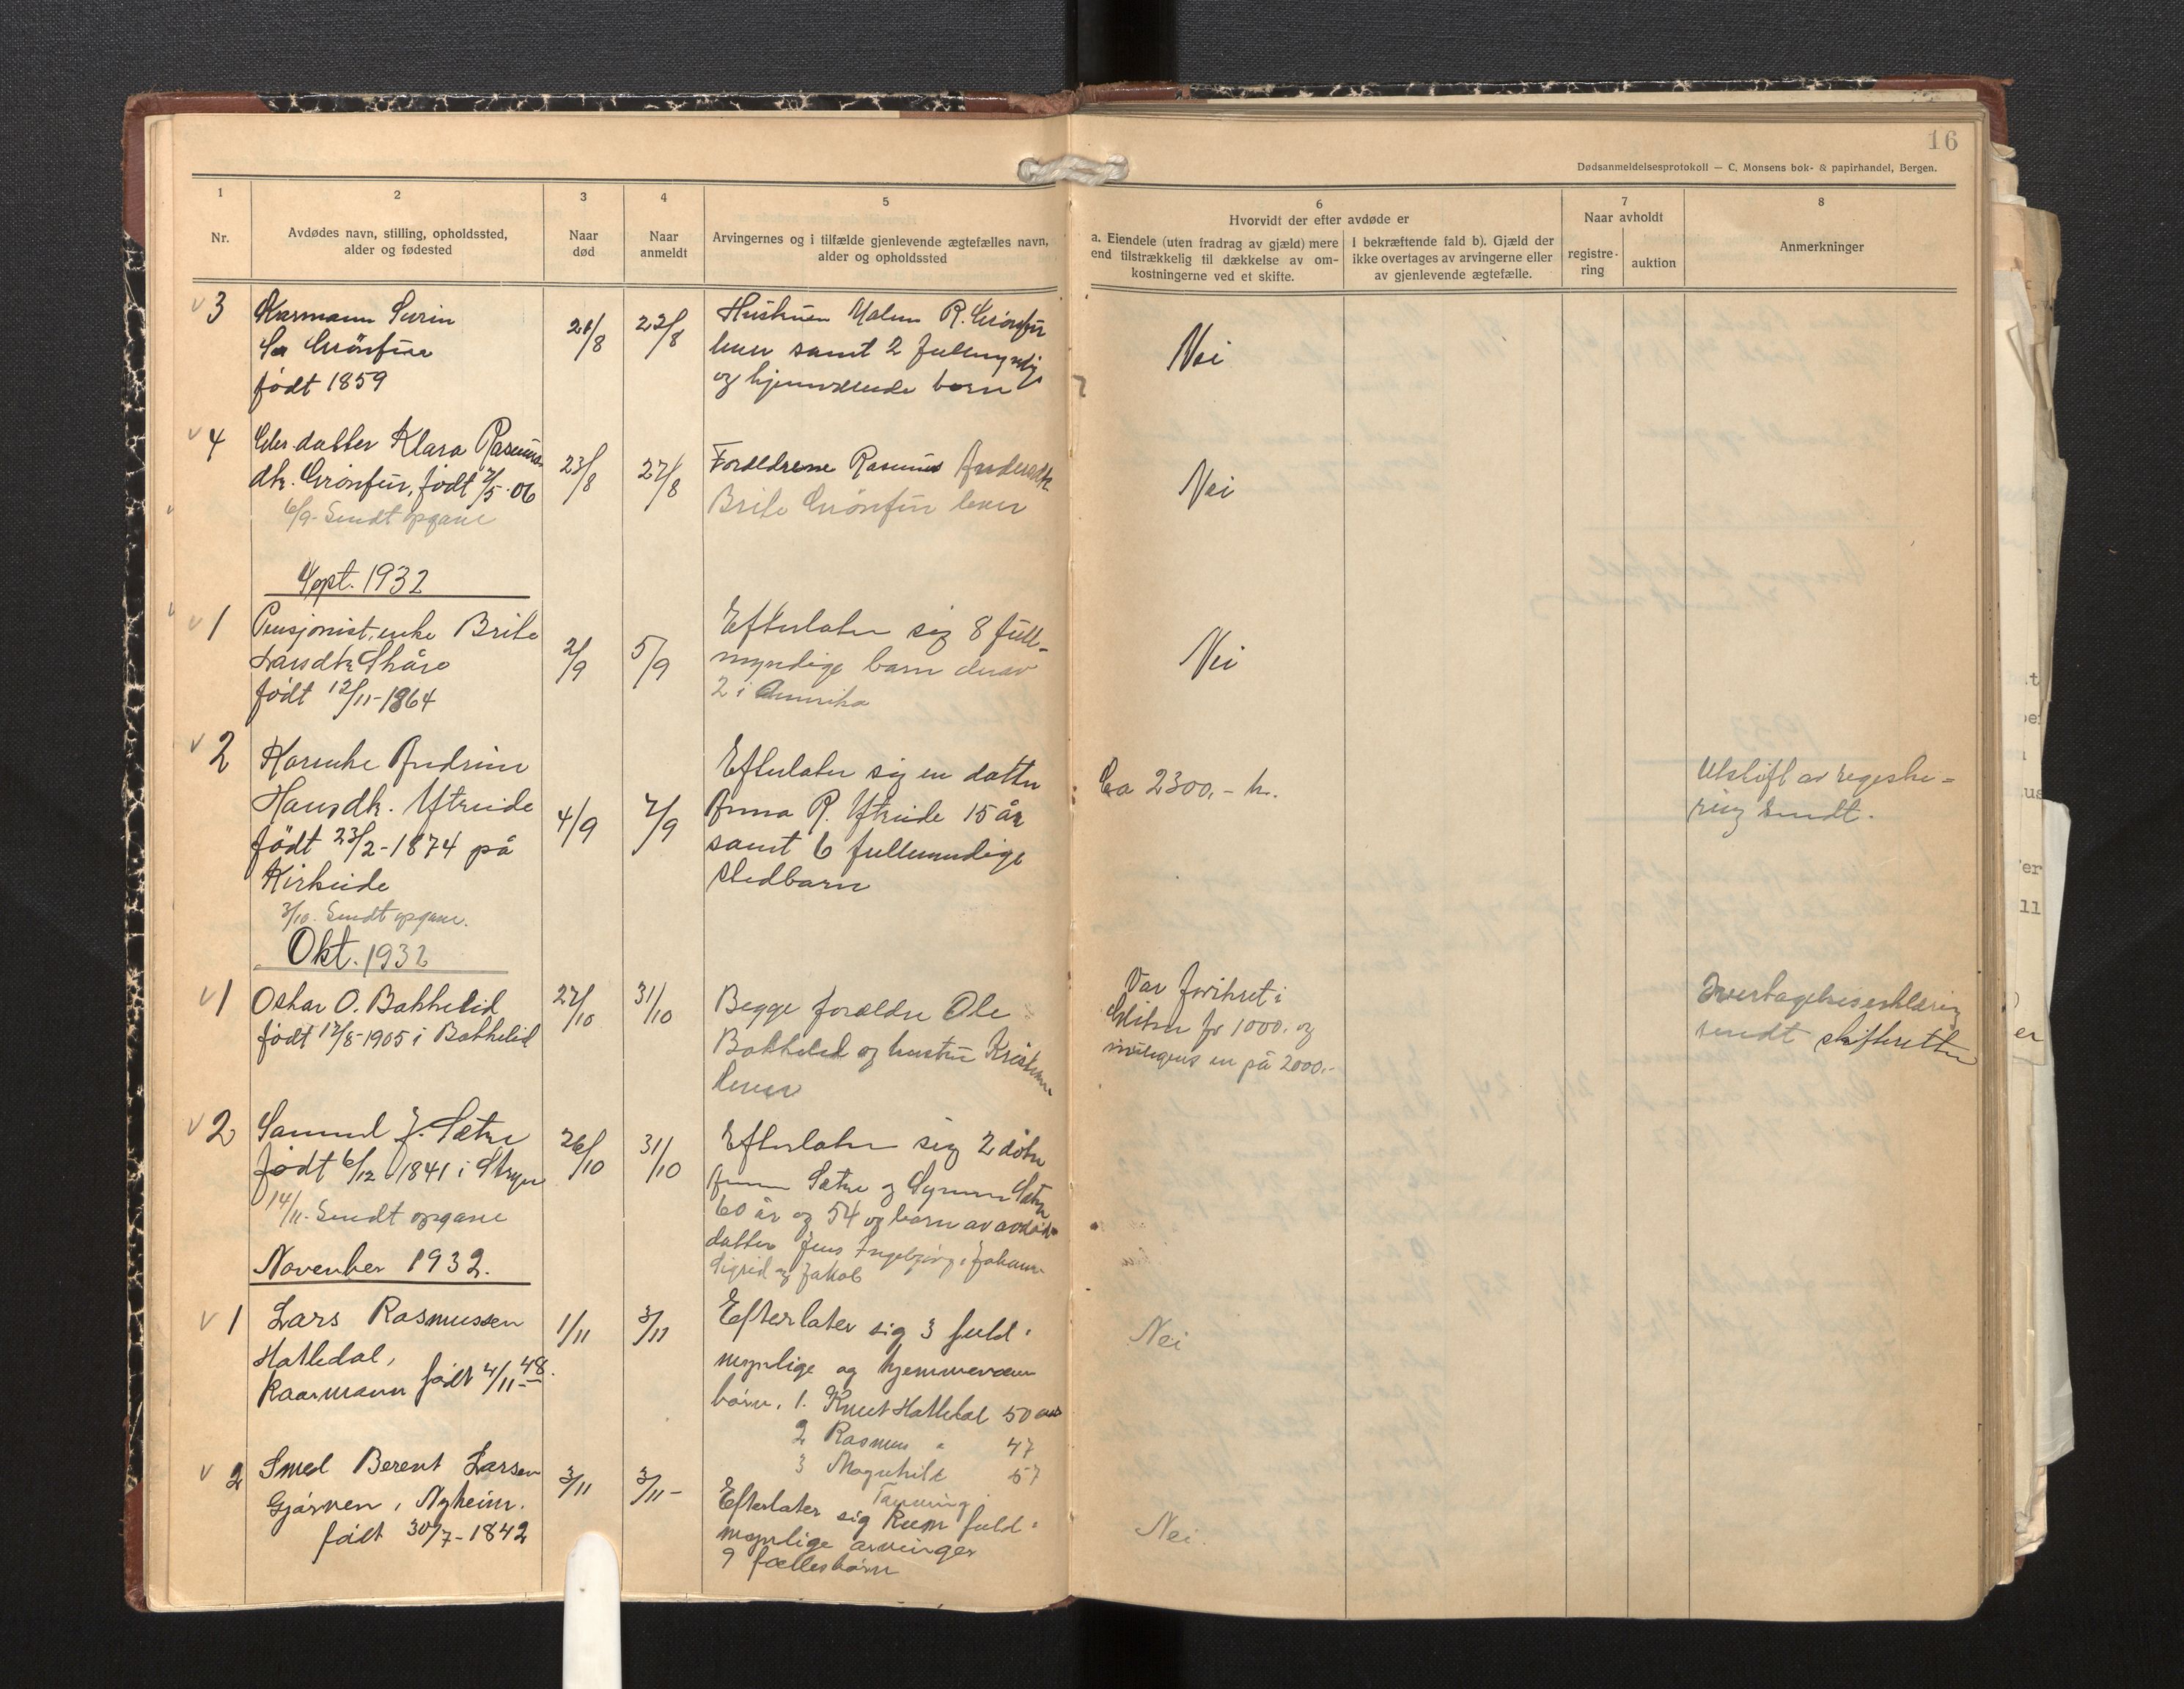 16
Dødsanmeldelsesprotokoll — C. Monsens bok- & papirhandel, Bergen.
1
Nr.
2
Avdødes navn, stilling, opholdssted,
alder og fødested
3
Naar
død
4
Naar
anmeldt
5
Arvingernes og i tilfælde gjenlevende ægtefælles navn,
alder og opholdssted
6
Hvorvidt der efter avdøde er
a. Eiendele (uten fradrag av gjæld) mere
end tilstrækkelig til dækkelse av om-
kostningerne ved et skifte.
I bekræftende fald b). Gjæld der
ikke overtages av arvingerne eller
av gjenlevende ægtefælle.
7
Naar avholdt
registre-
ring
auktion
8
Anmerkninger
v 3
født 1859
21/8
22/8
R. Grönfur
lever samt 2 fullmyndig
og hjemværende barn
Nei
v 4
datter Klara Rasmus
dtr. Grönfur, født /5-06
6/9- Sendt opgave
23/8
27/8
Foreldrene Rasmus
Brite Grönfur lever
Nei
Sept. 1932
v 1
Pensjonist, enke Brite
Larsdtr Skåre
født 12/11-1864
2/9
5/9
Efterlater sig 8 full-
myndige barn derav
2 i Amerika
Nei
v 2
Kårenke Andrine
Hansdtr. Ytreeide
født 23/2-1874 på
Kirkeide
3/10. Sendt opgave.
4/9
7/9
Efterlater sig en datter
Anna R. Ytreeide 15 år
samt 6 fullmundige
stedbarn
Ca 2300,- kr.
Utskrift av regestre-
ring sendt.
Okt. 1932
v 1
Oskar O. Bakkelid
født 12/8-1905 i Bakkelid
27/10
31/10
Begge foreldre Ole
Bakkelid og hustru Kristine
lever
Var forikret i
for 1000. og
en på 2000.-
Overtagelseserklæring
sendt skifteretten
v 2
Samuel J. Sætre
født 6/12 1841 i Stryn
14/11. Sendt opgave
26/10
31/10
Efterlater sig 2 dötre
Sætre og Synneve Sætre
60 år og 54 og barn av avdöd
datter Jens Ingebjørg, Johann
Sigrid og Jakob
November 1932.
v 1
Lars Rasmussen
Hatledal,
Kaarmann født 4/11-48.
1/11
3/11
Efterlater sig 3 fuld-
myndige og hjemmevær
børn, 1. Knut Hatledal 50 aar
2 Rasmus " 47
3 Magnhild 57
Tanning
Nei
v 2
Smed Berent Larsen
Gjørven, Nyheim.
født 30/7-1842
3/11
3/11-
Efterlater sig kun fuld-
myndige arvinger
9 fællesbørn
Nei.